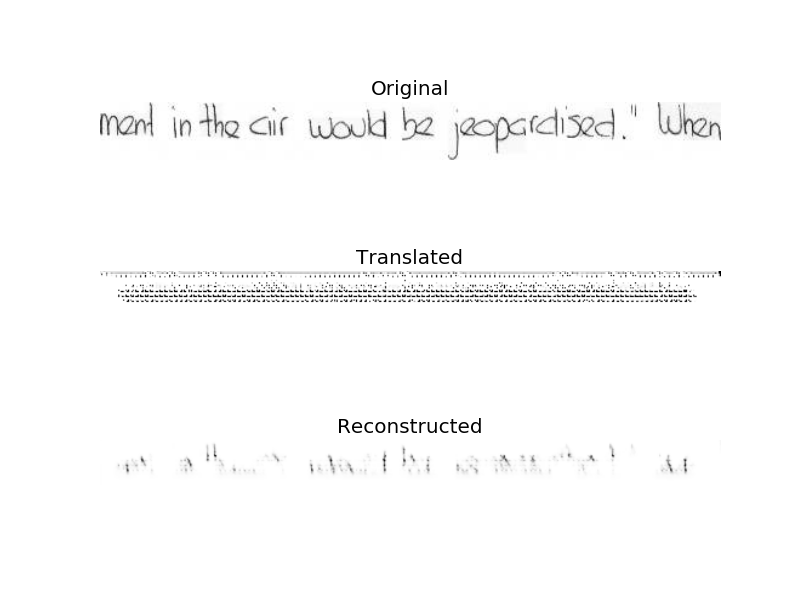 Original
ment in the air would be jeopardised." When
Translated
Reconstructed